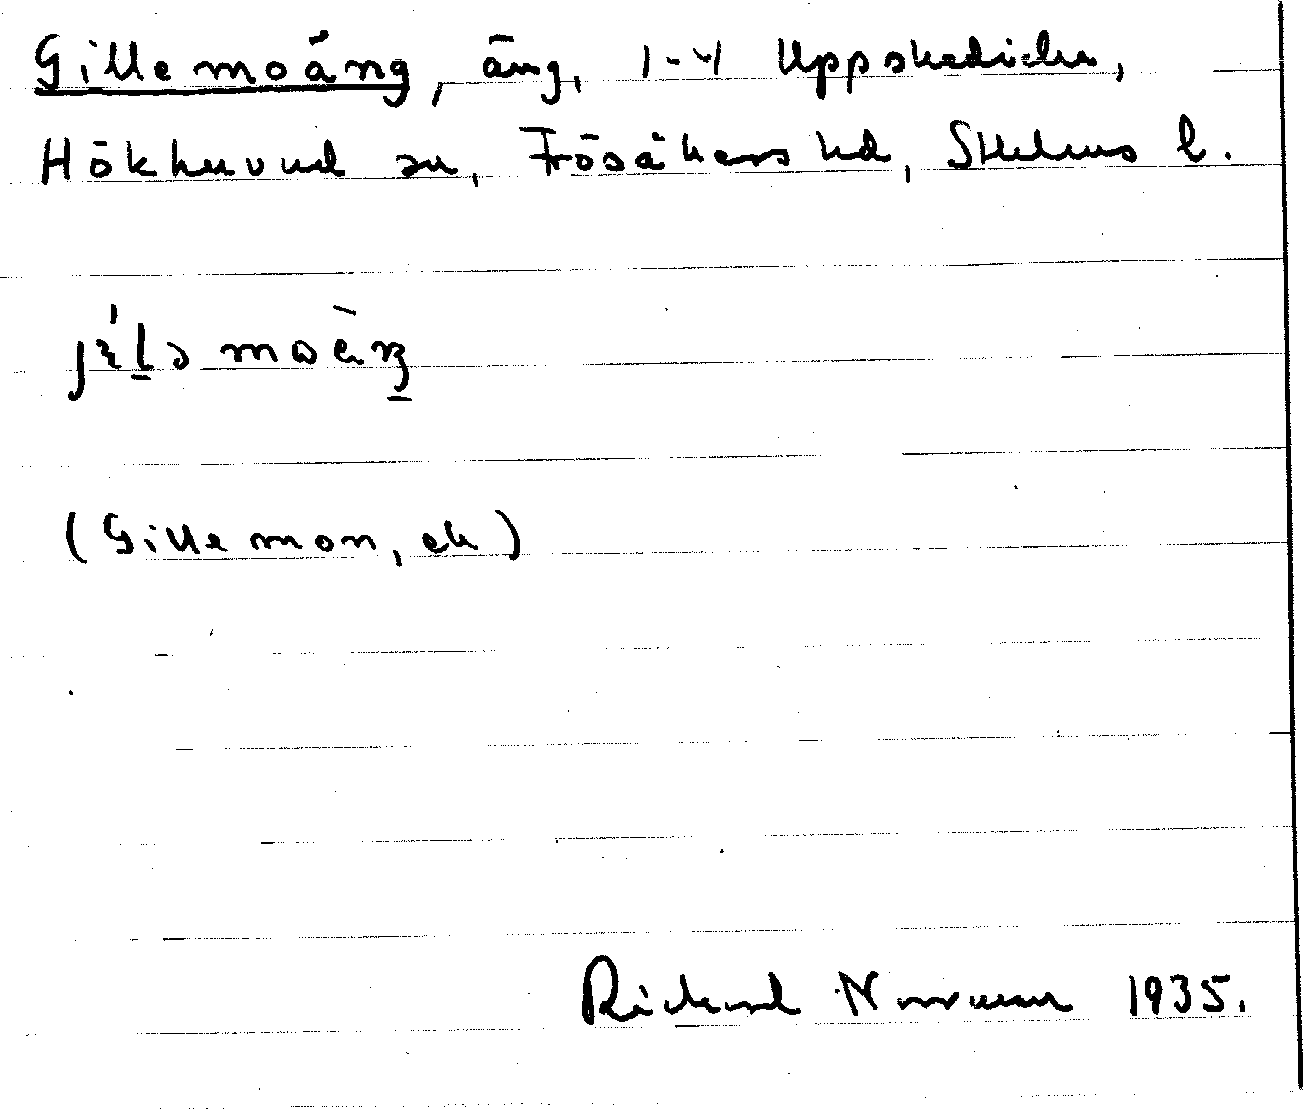 Gillemoäng, äng, 1-4 Uppskedicka,
Hökhuvud sn, Frösåkers hd, Sthlms l.
(Gillemon, ek)
Rickard Norrman 1935.